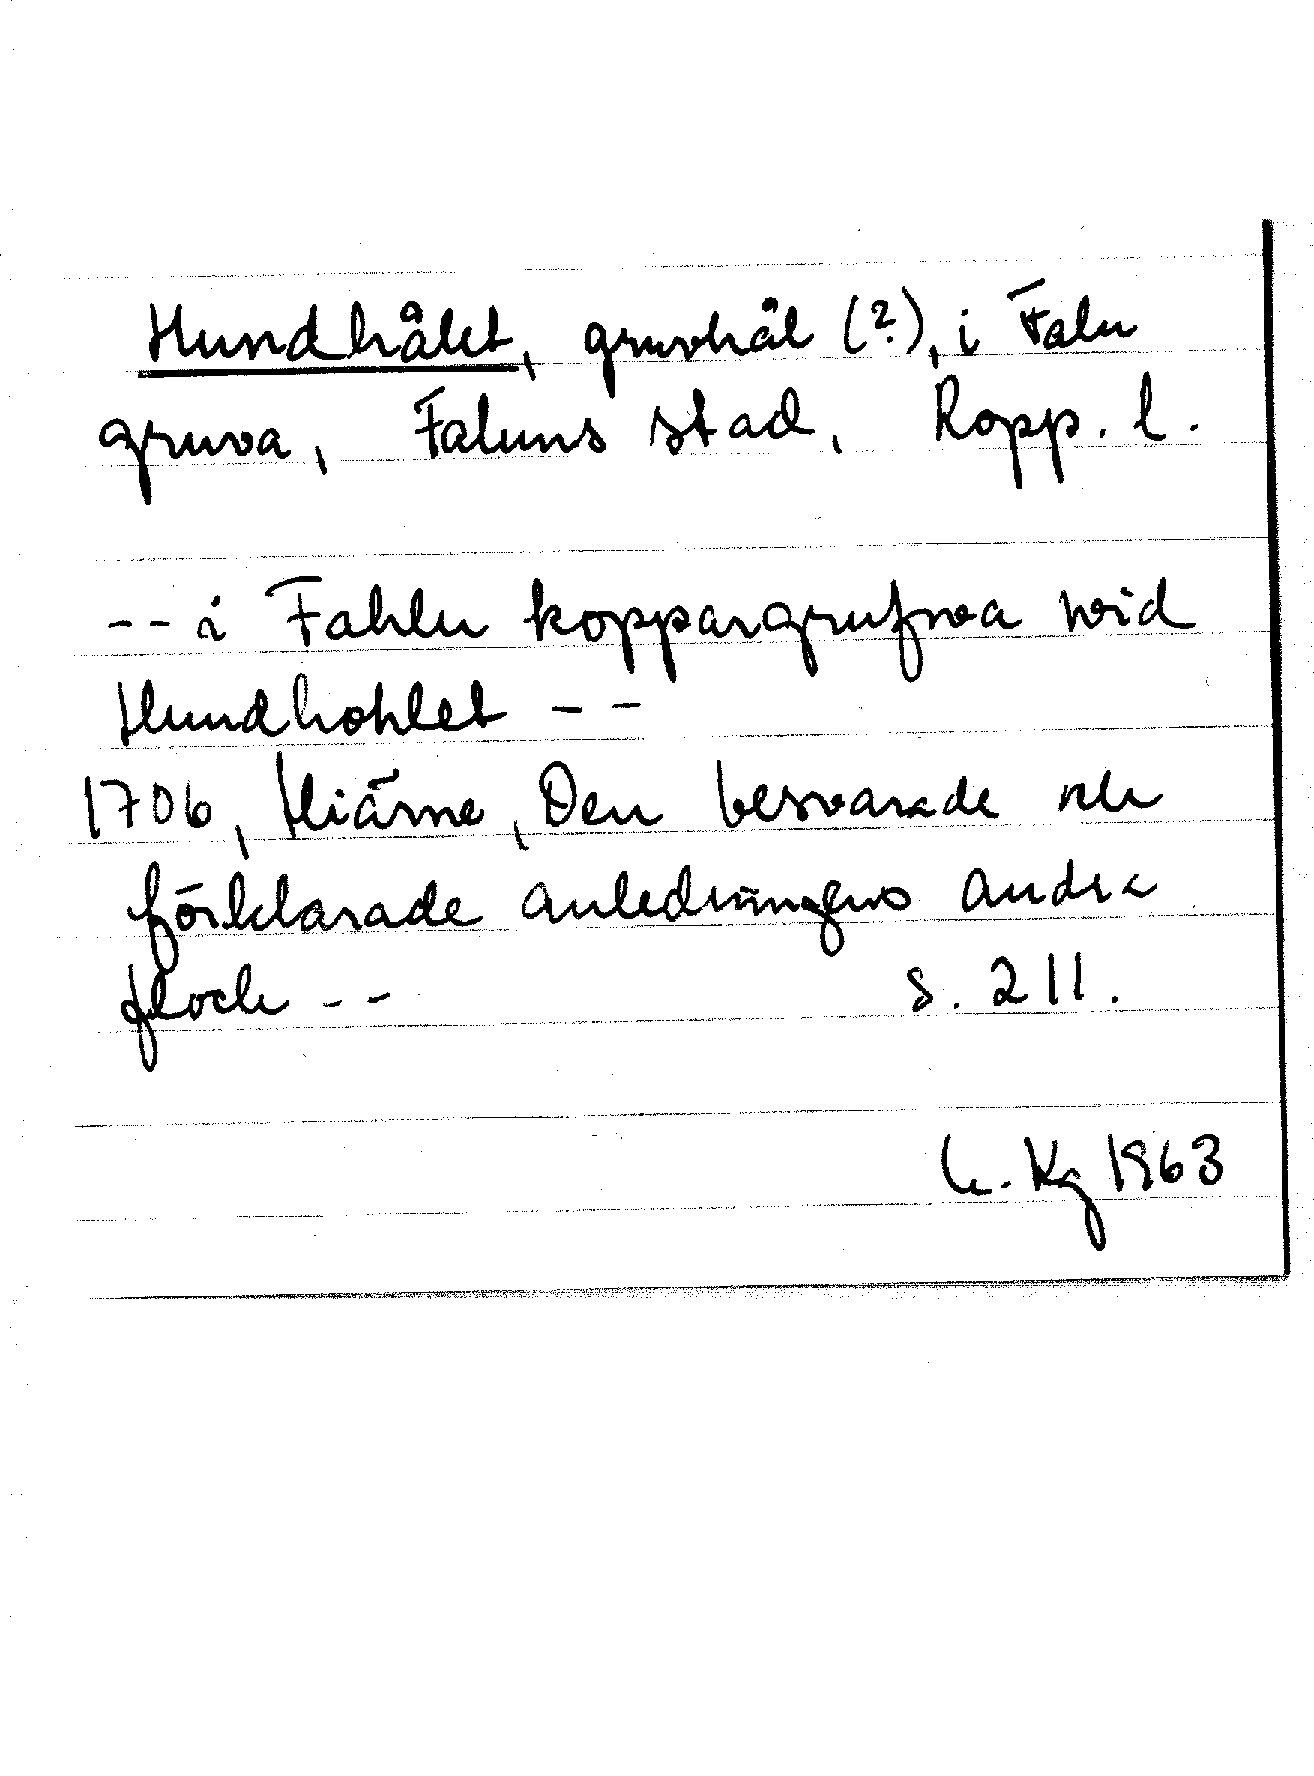 Hundhålet, gruvhål (?), i Falu
gruva, Faluns stad, Kopp. l.
-- i Fahlu koppargrufwa wid
Hundhohlet --
1706, Hiärne, Den besvarade och
förklarade anledningens andra
flock -- s. 211.
Kg 1963